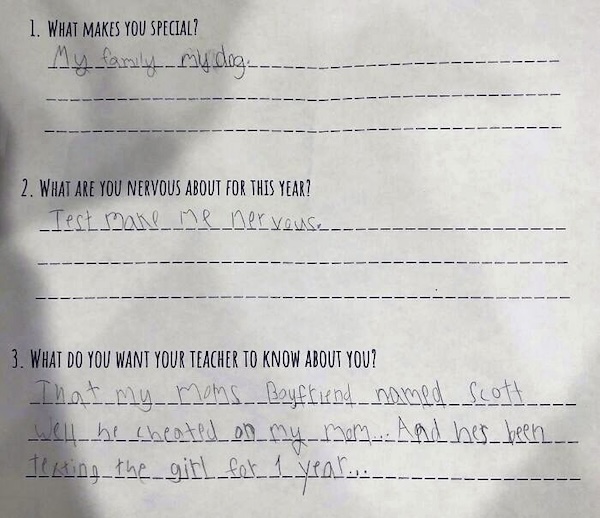 1. WHAT MAKES YOU SPECIAL?
My family my dog.
2. WHAT ARE YOU NERVOUS ABOUT FOR THIS YEAR?
Test make me nervous.
3. WHAT DO YOU WANT YOUR TEACHER TO KNOW ABOUT YOU?
That my moms Boyfriend named Scott
well he cheated on my mom... And hes been
texting the girl for 1 year...